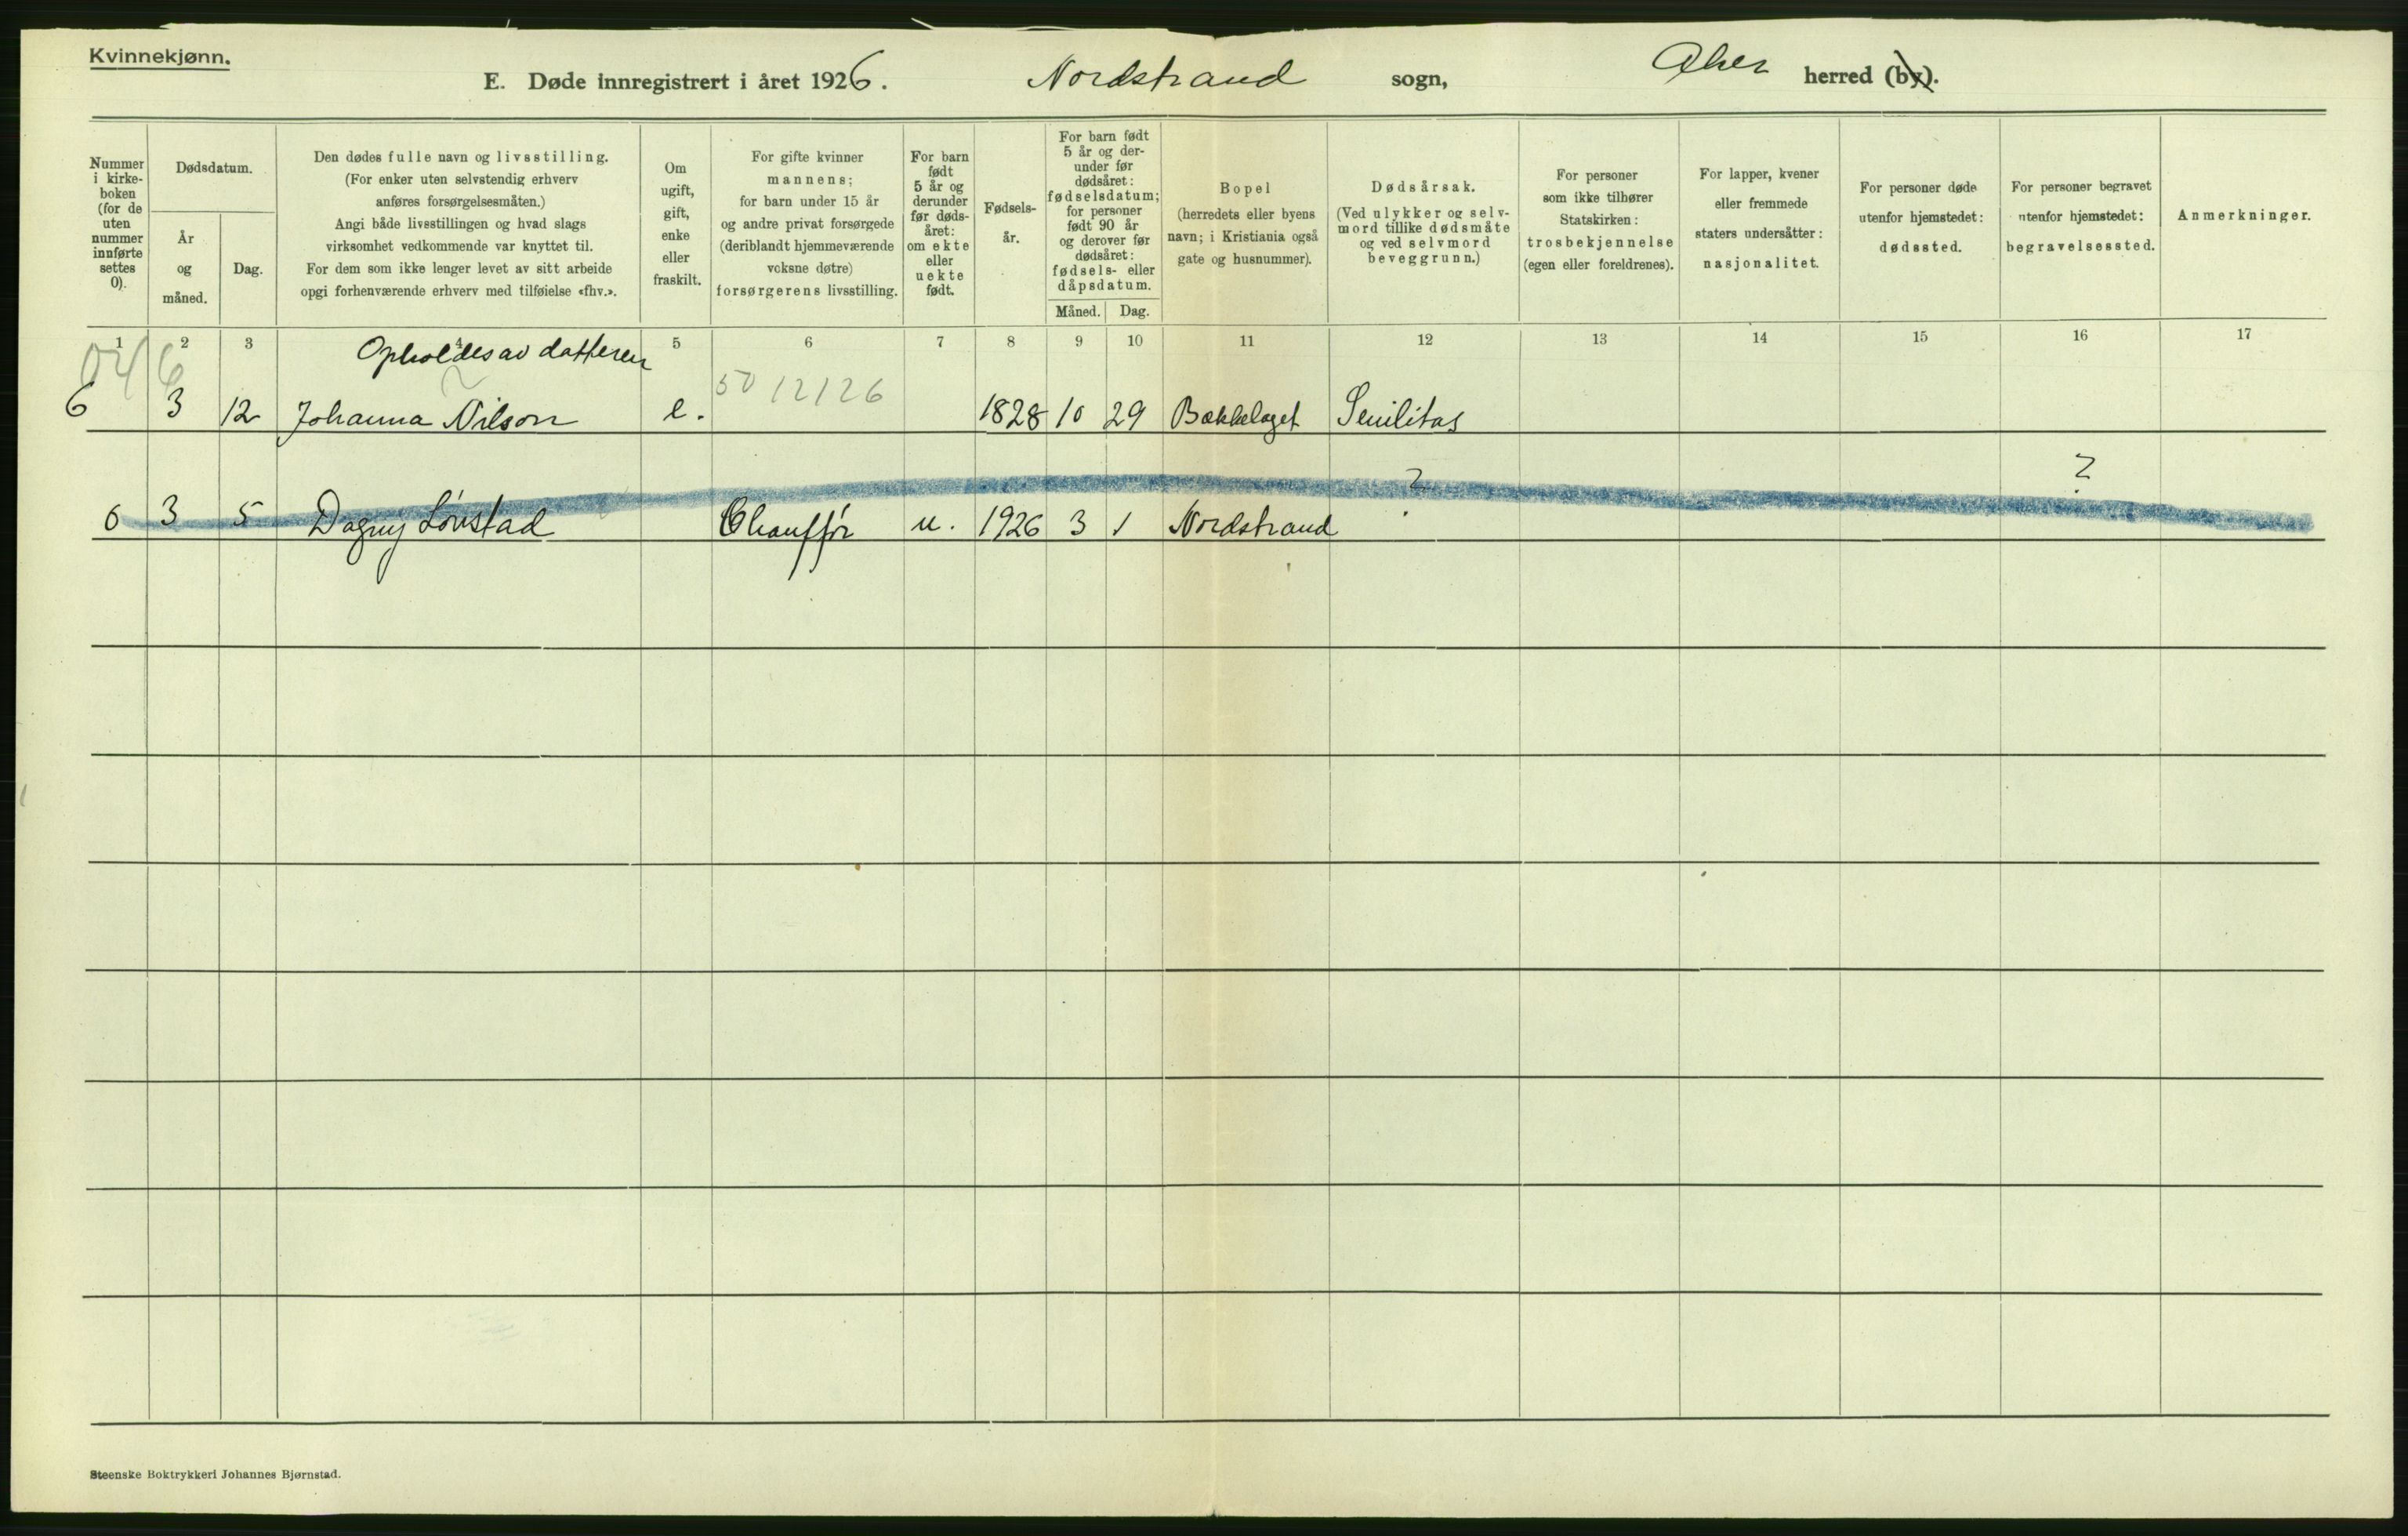 Kvinnekjønn.
E. Døde innregistrert i året 1926. Nordstrand sogn, Aker herred (by).
Nummer i kirke-boken (for de uten nummer innførte settes 0).
Dødsdatum.
År og måned.
Dag.
Den dødes fulle navn og livsstilling.
(For enker uten selvstendig erhverv
anføres forsørgelsesmåten.)
Angi både livsstillingen og hvad slags
virksomhet vedkommende var knyttet til.
For dem som ikke lenger levet av sitt arbeide
opgi forhenværende erhverv med tilføielse «fhv.».
Om
ugift,
gift,
enke
eller
fraskilt.
For gifte kvinner
mannens;
for barn under 15 år
og andre privat forsørgede
(deriblandt hjemmeværende
voksne døtre)
forsørgerens livsstilling.
For barn
født
5 år og
derunder
før døds-
året:
om ekte
eller
uekte
født.
Fødsels-
år.
For barn født
5 år og der-
under før
dødsåret:
fødselsdatum;
for personer
født 90 år
og derover før
dødsåret:
fødsels- eller
dåpsdatum.
Måned. Dag.
Bopel
(herredets eller byens
navn; i Kristiania også
gate og husnummer).
Dødsårsak.
(Ved ulykker og selv-
mord tillike dødsmåte
og ved selvmord
beveggrunn.)
For personer
som ikke tilhører
Statskirken:
trosbekjennelse
(egen eller foreldrenes).
For lapper, kvener
eller fremmede
staters undersåtter:
nasjonalitet.
For personer døde
utenfor hjemstedet:
dødssted.
For personer begravet
utenfor hjemstedet:
begravelsessted.
Anmerkninger.
1 2 3 4 5 6 7 8 9 10 11 12 13 14 15 16 17
046
Opholdes av datteren
50 12126
6 3 12 Johanna Nilson e. 1828 10 29 Bækkelaget Senilitas
0 3 5 Dagny Lønstad Chauffør u. 1926 3 1 Nordstrand ? ?
Steenske Boktrykkeri Johannes Bjørnstad.